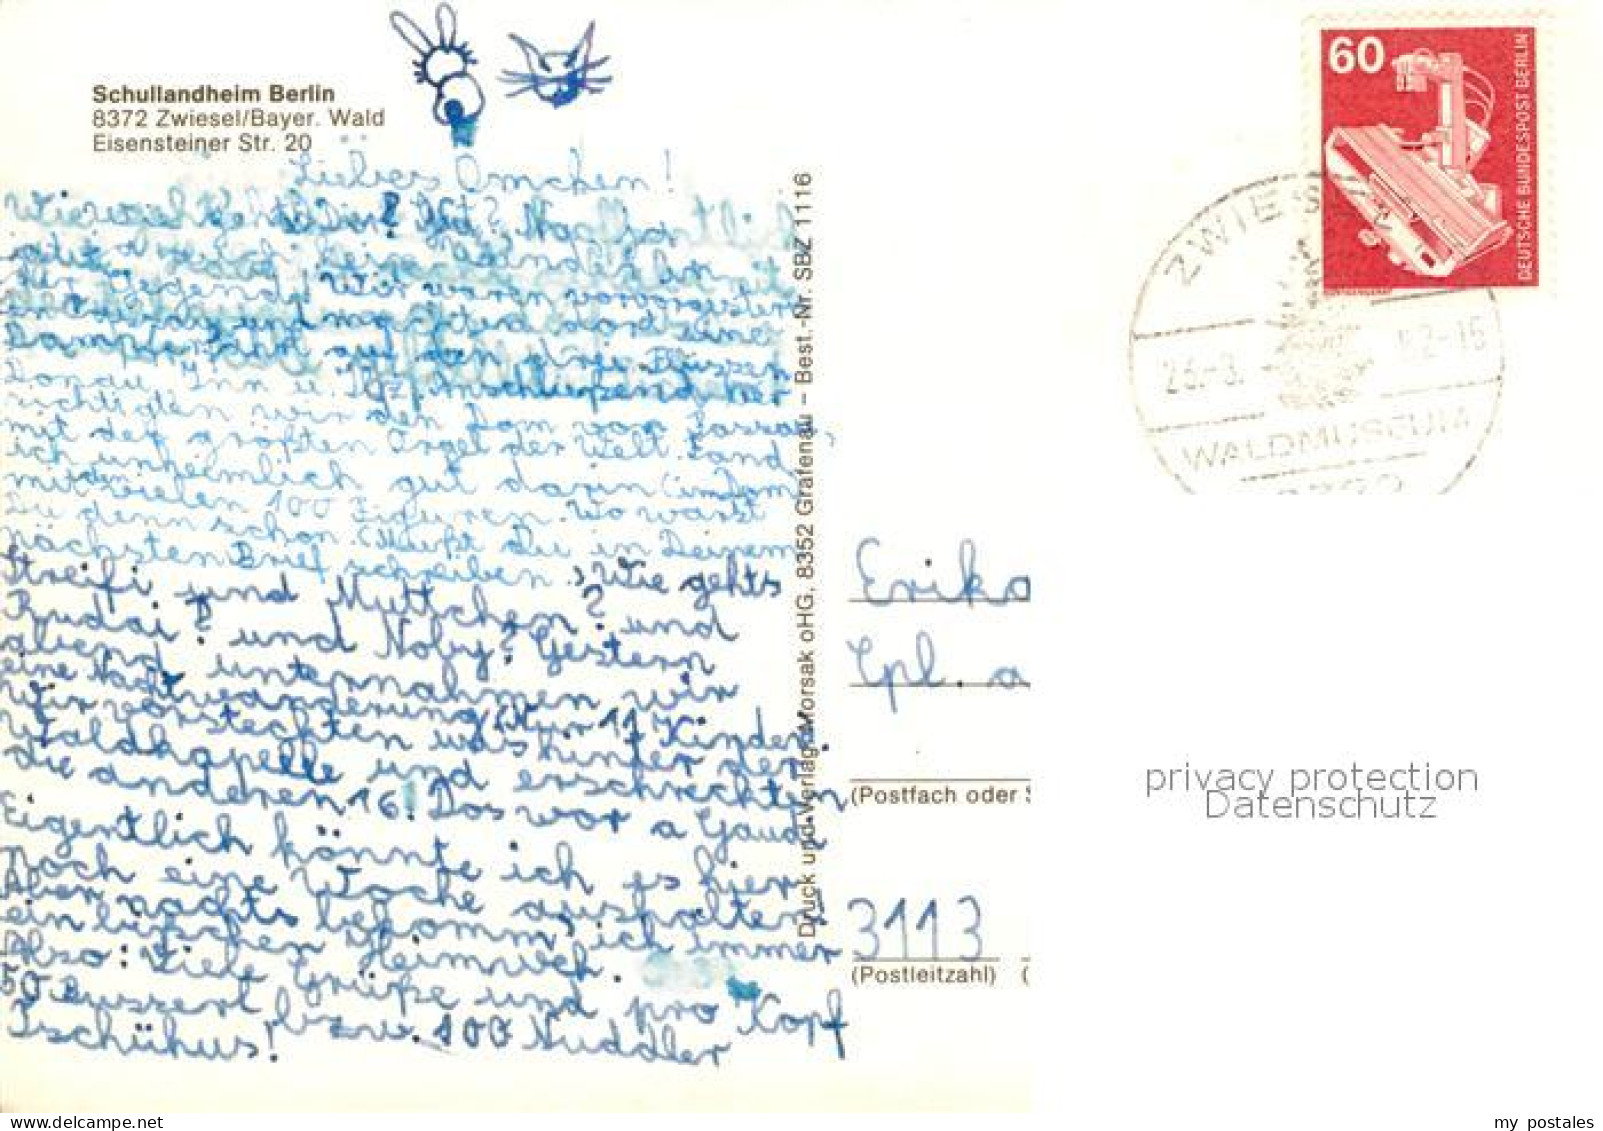 Schullandheim Berlin
8372 Zwiesel/Bayer. Wald
Eisensteiner Str. 20
Liebes Omchen!
Wie geht's Dir? Gut? Hoffentlich
der Gegend! Wir waren vorgestern
in und machten dort eine
Dampferfahrt auf den drei Flüssen
Donau, Inn u. Ilz. Anschließend
wir den Dom von Passau,
mit der größten Orgel der Welt. Fand
ich unheimlich gut darin (im Dom
mit vielen 100 Figuren. Wo warst
Du denn schon. (Mußt Du in Deinem
nächsten Brief schreiben. Wie gehts
Streifi und Muttchen? und
Rudai? und Noby? Gestern
abend unternahmen wir
eine Nachtwanderung. Wir 11 Kinder
versteckten uns hinter der
Waldkapelle und erschreckten
die anderen 16. Das war a Gaudi
Eigentlich könnte ich es hier
noch eine Woche aushalten.
Aber nachts bekomm' ich immer
ein bißchen Heimweh.
Also: Viele Grüße und pro Kopf
50 Busserl bzw. 100 Nuddler
Tschühus!
Druck und Verlag Morsak oHG, 8352 Grafenau – Best.-Nr. SBZ 1116
60
DEUTSCHE BUNDESPOST BERLIN
ZWIES
26.-3.
82-15
WALDMUSEUM
Erika
(Postfach oder S
3113
(Postleitzahl)
privacy protection
Datenschutz
my postales